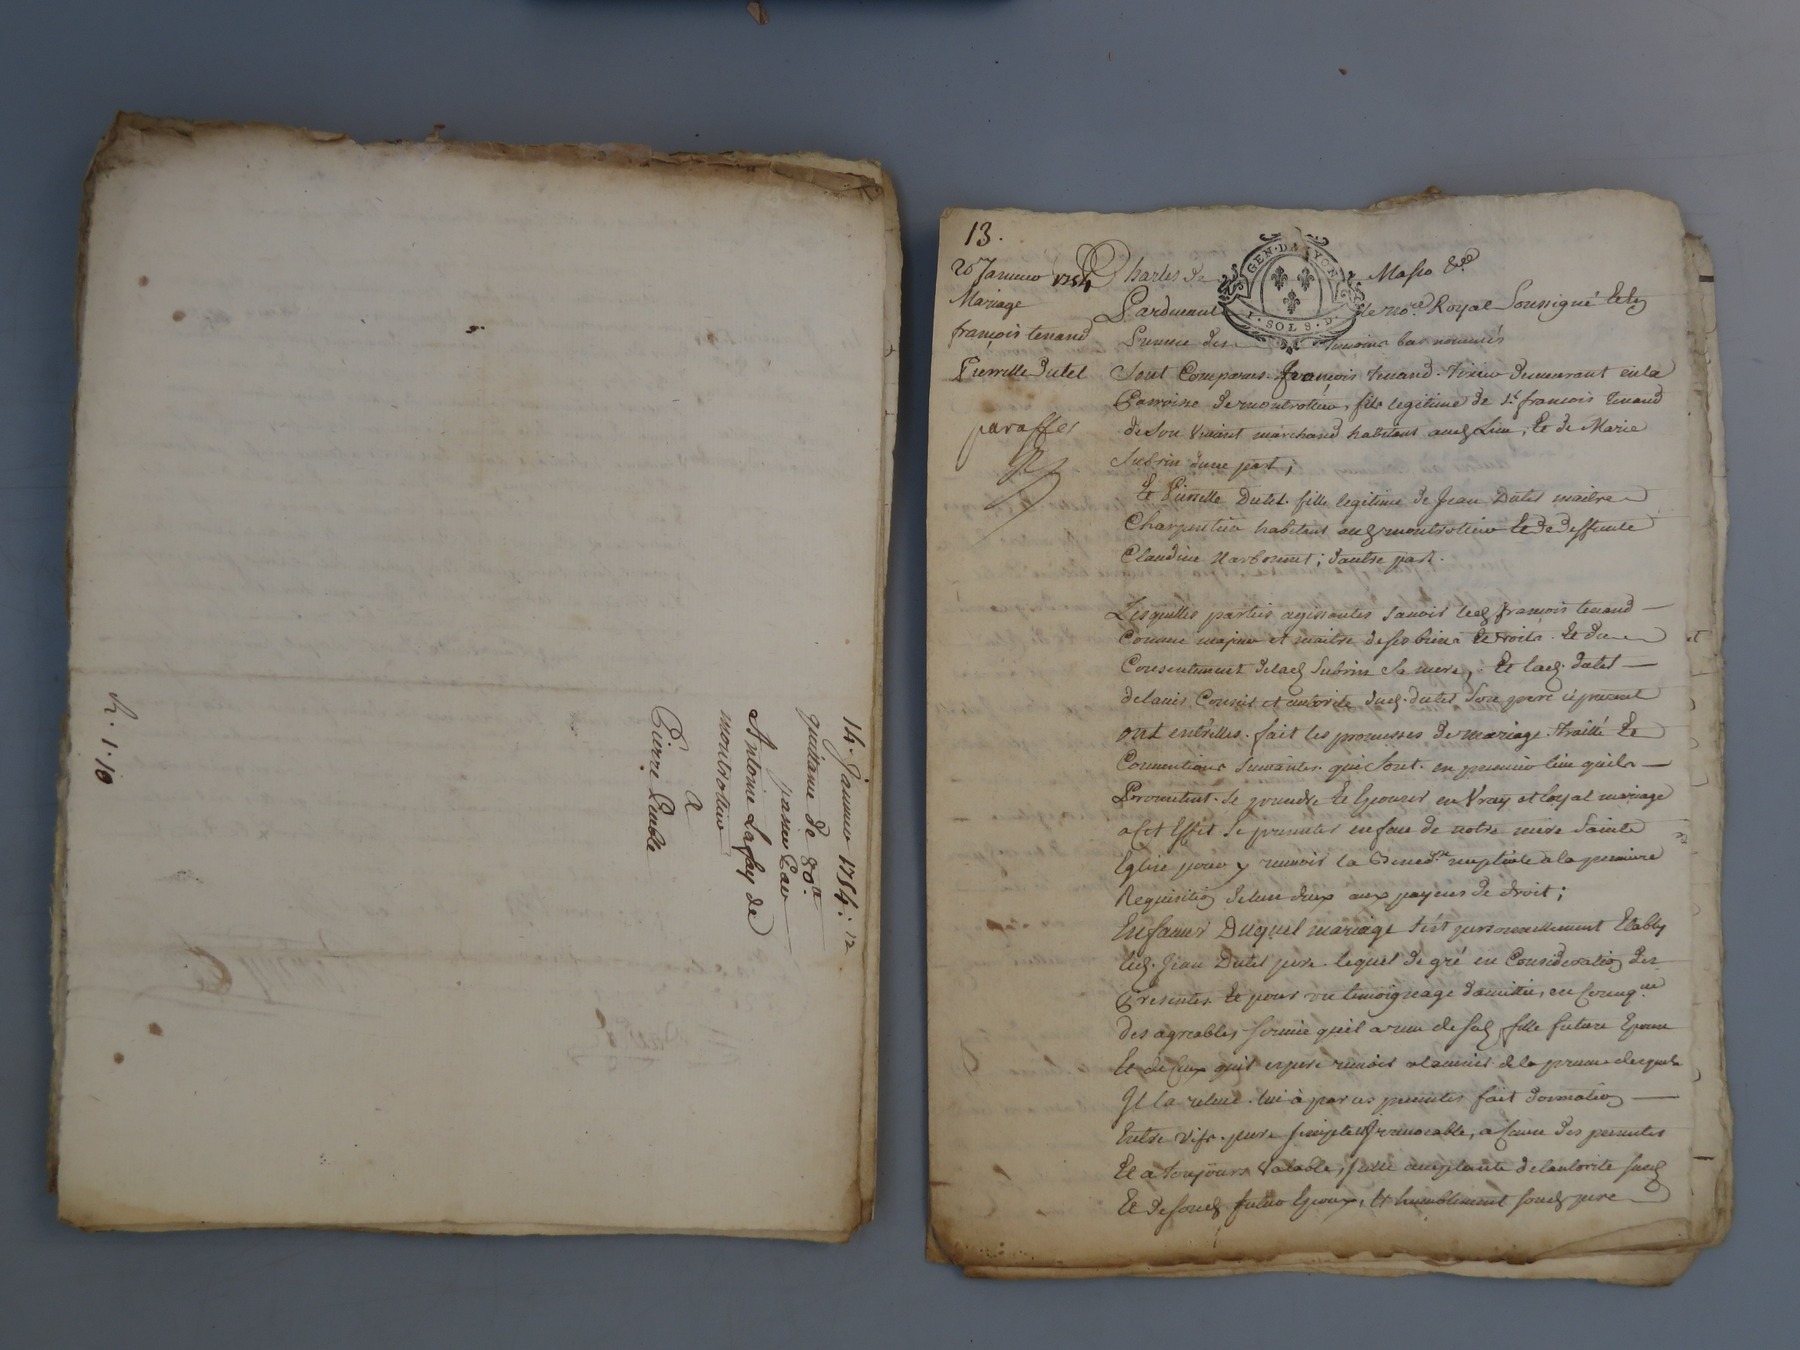 14. Janvier 1754: 12
quittance de 80.tt
passée Par
Antoine Lafay de
montrottier
A
Pierre
R. 1. 10
13.
20 Janvier 1754
Mariage
françois tenand
Pierrette Dutel
paraffer
Charles de Masso &.ce
GEN. D. LYON
I. SOLS. D.
Pardevant le no.re Royal Soussigné Et En
Presence des temoins bas nommés
Sont Comparus. françois tenand. demeurant en la
Parroisse de montrottier, fils legitime de S.t francois tenand
de Son Vivant marchand habitant aud Lieu, Et de Marie
Subrin dune part;
Et Pierrette Dutel fille legitime de Jean Dutel maitre
Charpentier habitant aud montrottier Et de deffunte
Claudine ; dautre part.
Lesquelles parties agissantes Sauoir led françois tenand
Comme majeur et maitre de ses biens Et droits. Et du
Consentement de lad Subrin Sa mere, Et lad. dutel
de lauis Conseil et autorité dud. dutel Son pere cy present
ont entr'elles fait les promesses de mariage. traitté Et
Conuentions Suivantes. qui Sont. en premier lieu quils
Promettent. Se prendre Et Epouser en Vray et loyal mariage
a cet Effet Se presenter en face de notre mere Sainte
Eglise pour y receuoir la Bened.on nuptiale a la premiere
Requisition de lun deux aux peynes de droit;
En faueur Duquel mariage S'est personnellement Etably
led. Jean Dutel pere. lequel de gré en Consideration des
Presentes. Et pour temoignage damitié, en
des agreables Seruices quil a reçu de sad fille future Epouse
Et de Ceux quil espere receuoir a lauenir de la preuue desquels
Il la releue. lui à par ces presentes fait donnation
Entre Vifs. pure Simple et Irreuocable, a cause des presentes
Et a toujours Valable, Icelle acceptante de lautorité Susd
Et de Soud futur Epoux, Et humblement Soud pere